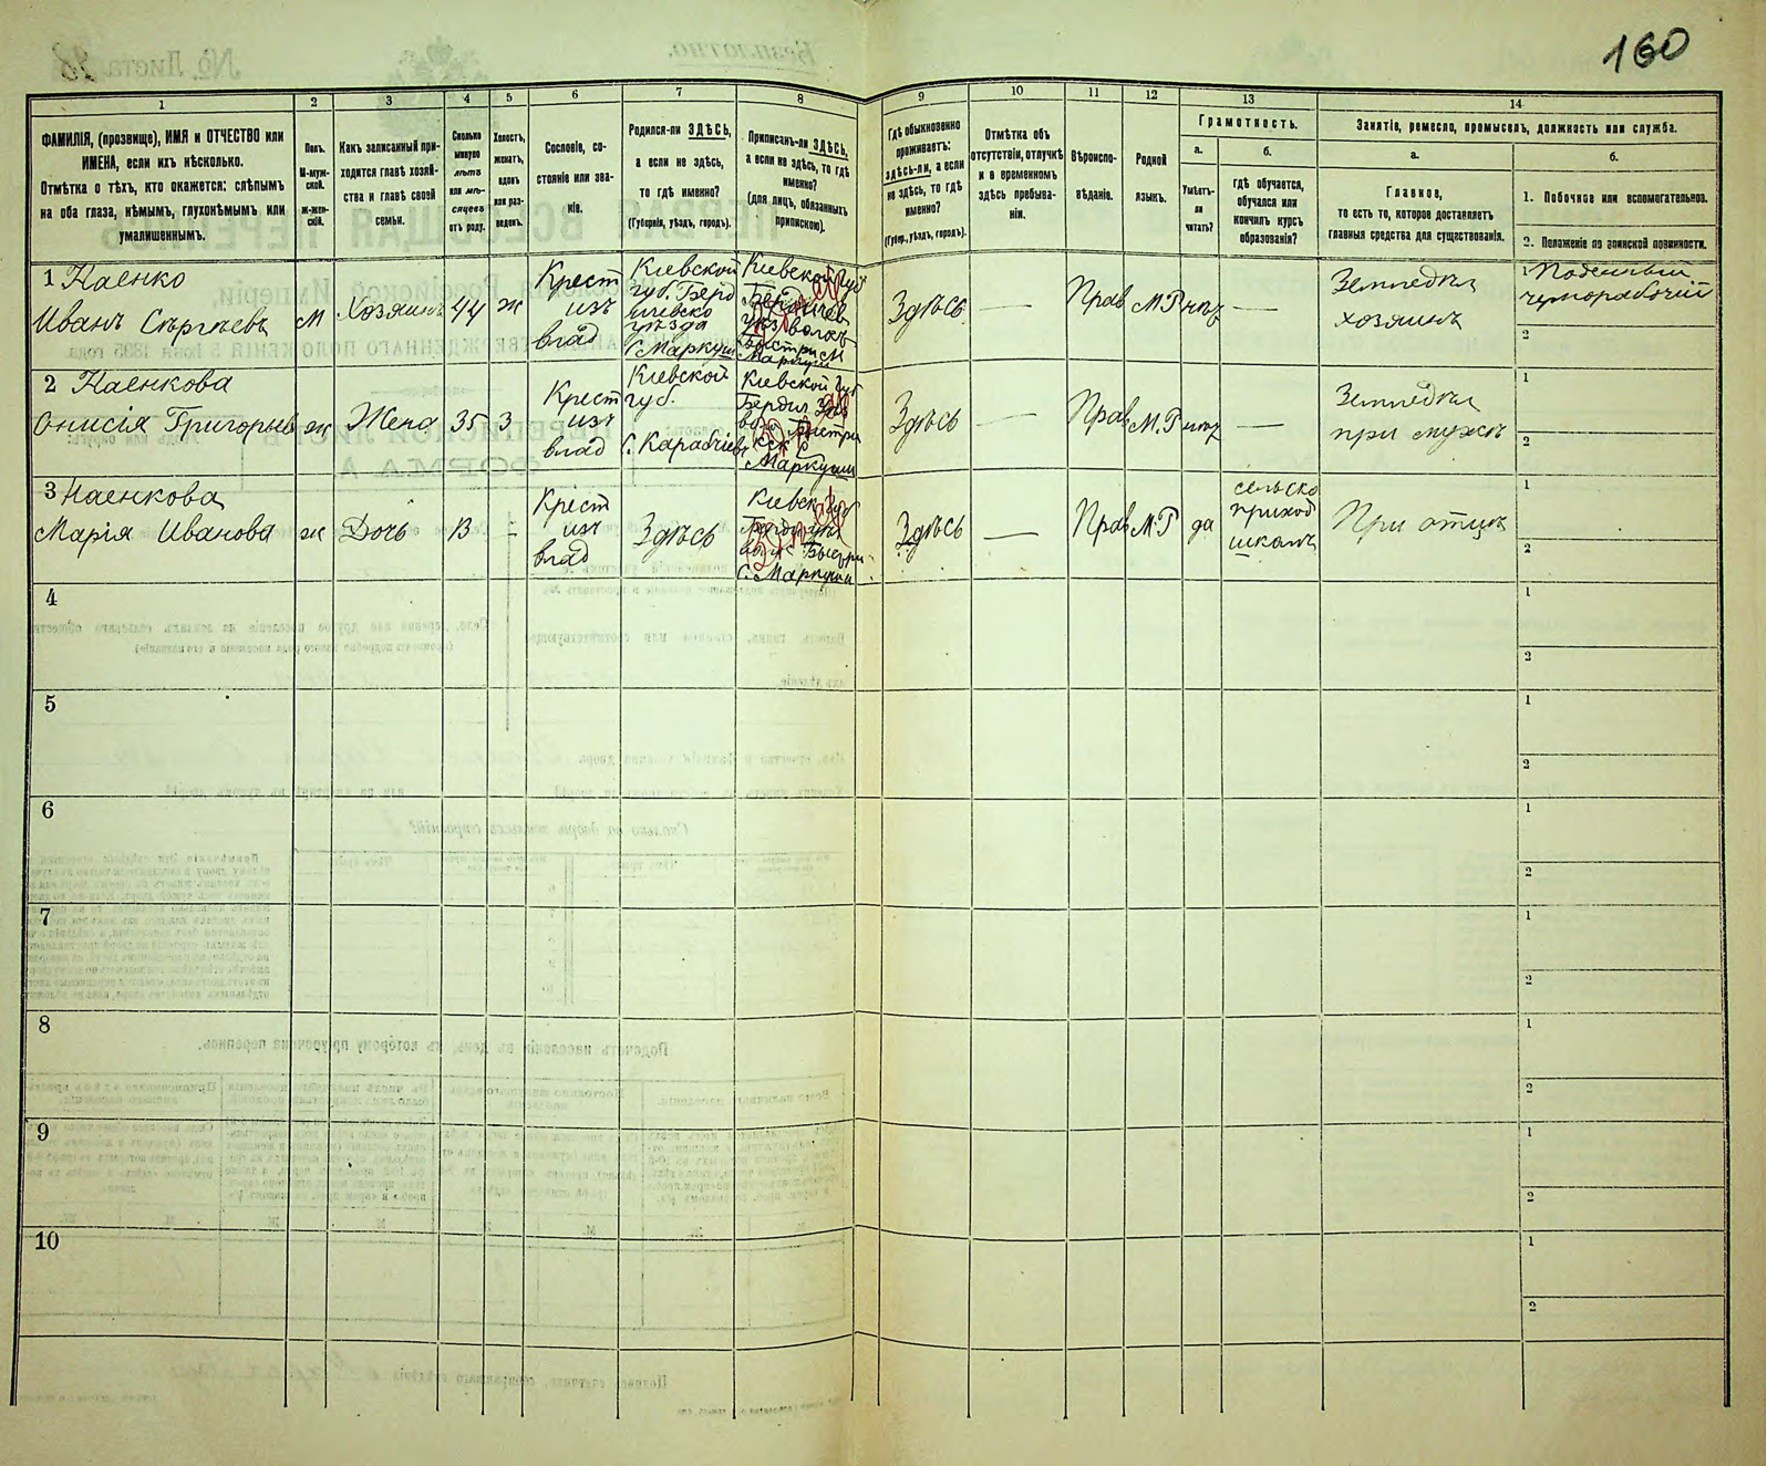 160
1
2
3
4
5
6
7
8
9
10
11
12
13
14
ФАМИЛІЯ, (прозвище), ИМЯ и ОТЧЕСТВО или
ИМЕНА, если ихъ нѣсколько.
Отмѣтка о тѣхъ, кто окажется: слѣпымъ
на оба глаза, нѣмымъ, глухонѣмымъ или
умалишеннымъ.
Полъ.
М-муж-
ской.
Ж-жен-
скій.
Какъ записанный при-
ходится главѣ хозяй-
ства и главѣ своей
семьи.
Сколько
минуло
лѣтъ
или мѣ-
сяцевъ
отъ роду.
Холостъ,
женатъ,
вдовъ
или раз-
веденъ.
Сословіе, со-
стояніе или зва-
ніе.
Родился-ли ЗДѢСЬ,
а если не здѣсь,
то гдѣ именно?
(Губернія, уѣздъ, городъ).
Приписанъ-ли ЗДѢСЬ,
а если не здѣсь, то гдѣ
именно?
(для лицъ, обязанныхъ
припискою).
Гдѣ обыкновенно
проживаетъ:
здѣсь-ли, а если
не здѣсь, то гдѣ
именно?
(Губер., уѣздъ, городъ).
Отмѣтка объ
отсутствіи, отлучкѣ
и о временномъ
здѣсь пребыва-
ніи.
Вѣроиспо-
вѣданіе.
Родной
языкъ.
Грамотность.
а.
б.
Умѣетъ-
ли
читать?
гдѣ обучается,
обучался или
кончилъ курсъ
образованія?
Занятіе, ремесло, промыселъ, должность или служба.
а.
б.
Главное,
то есть то, которое доставляетъ
главныя средства для существованія.
1. Побочное или вспомогательное.
2. Положеніе по воинской повинности.
1 Наенко
Иванъ Сергѣевъ
м
Хозяинъ
44
ж
Крест
изъ
влад
Кіевской
губ. Берд
ичевско
уѣзда
с Маркуши
Кіевской Губ
Бердичев
Маркуши
Здѣсь
—
Прав
М.Р
нѣт
—
Земледѣл
хозяинъ
1 Поденный
чернорабочій
2
2 Наенкова
Онисія Григорьев
ж
Жена
35
З
Крест
изъ
влад
Кіевской
губ.
С. Карабчіев
Кіевской Губ
Бердич
С
Маркуши
Здѣсь
—
Прав
М.Р
нѣт
—
Земледѣл
при мужѣ
1
2
3 Наенкова
Марія Иванова
ж
Дочь
13
-
Крест
изъ
влад
Здѣсь
Кіевск Губ
С. Маркуши
Здѣсь
—
Прав
М.Р
да
сельско
приход
школѣ
При отцѣ
1
2
4
1
2
5
1
2
6
1
2
7
1
2
8
1
2
9
1
2
10
1
2